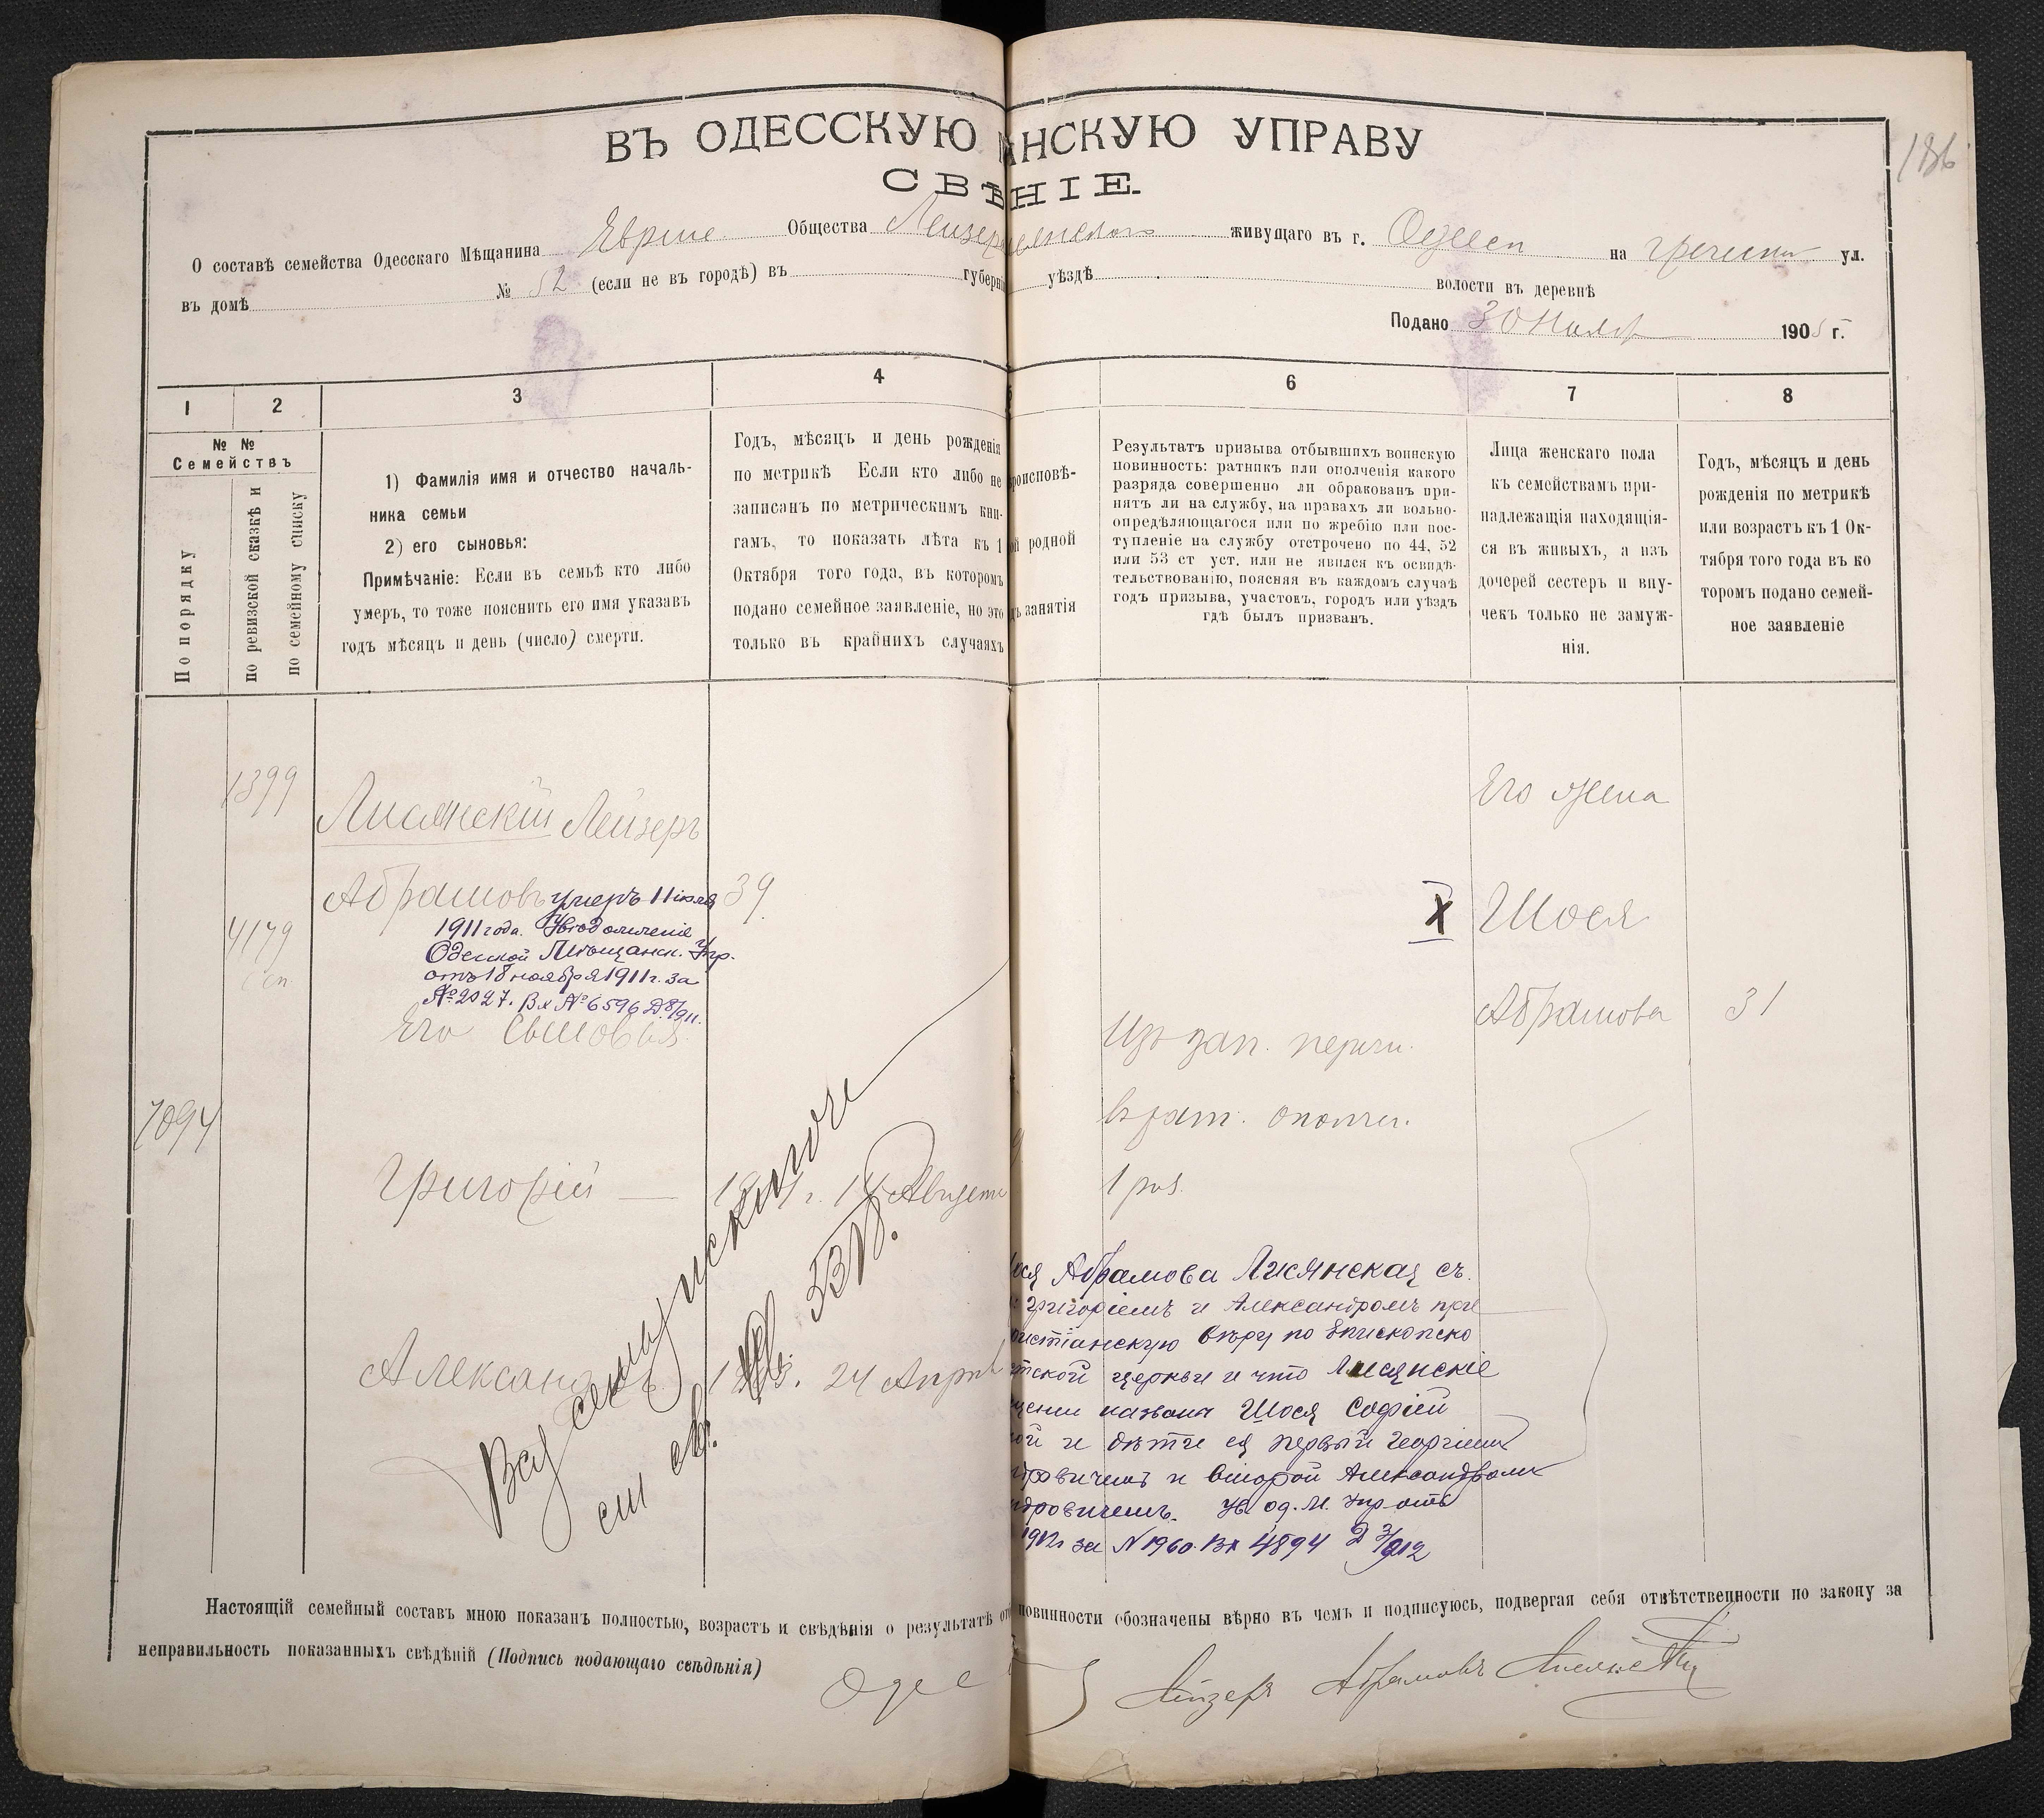 186
ВЪ ОДЕССКУЮ НСКУЮ УПРАВУ
СВѢНІЕ.
О составѣ семейства Одесскаго Мѣщанина Общества живущаго въ г. Одессѣ на ул.
въ домѣ № 52 (если не въ городѣ) въ губерні уѣздѣ волости въ деревнѣ
Подано 30 1905 г.
1 2 3 4 5 6 7 8
№ №
Семействъ
По порядку
по ревизской сказкѣ и
по семейному списку
1) Фамилія имя и отчество началь-
ника семьи
2) его сыновья:
Примѣчаніе: Если въ семьѣ кто либо
умеръ, то тоже пояснить его имя указавъ
годъ мѣсяцъ и день (число) смерти.
Годъ, мѣсяцъ и день рожденія
по метрикѣ Если кто либо не
записанъ по метрическимъ кни-
гамъ, то показать лѣта къ 1
Октября того года, въ которомъ
подано семейное заявленіе, но это
только въ крайнихъ случаяхъ
роисповѣ-
ой родной
занятія
Результатъ призыва отбывшихъ воинскую
повинность: ратникъ или ополченія какого
разряда совершенно ли обракованъ при-
нятъ ли на службу, на правахъ ли вольно-
опредѣляющагося или по жребію или пос-
тупленіе на службу отстрочено по 44, 52
или 53 ст уст. или не явился къ освидѣ-
тельствованію, поясняя въ каждомъ случаѣ
годъ призыва, участокъ, городъ или уѣздъ
гдѣ былъ призванъ.
Лица женскаго пола
къ семействамъ при-
надлежащія находящія-
ся въ живыхъ, а изъ
дочерей сестеръ и вну-
чекъ только не замуж-
нія.
Годъ, мѣсяцъ и день
рожденія по метрикѣ
или возрастъ къ 1 Ок-
тября того года въ ко
торомъ подано семей-
ное заявленіе
1399
Лисянскій Лейзеръ
Абрамовъ 39
умеръ 11 іюля
1911 года. Увѣдомленіе
Одесской Мѣщанск. Упр.
отъ 18 ноября 1911 г. за
№ 2027. Вх № 6596 Д 8/911.
4179
сп.
Его сыновья
7094
Григорій 14 Августа
Александръ 24 Апрѣл
Вся семья исключе
Изъ зап. перечи.
в рат. ополчен.
1 раз.
Его жена
X Шося
Абрамова 31
ося Абрамова Лисянская съ
Григоріемъ и Александромъ при
ристіанскую вѣру по Епископско
стской церкви и что Лисянскіе
щеніи названы Шося Софіей
ной и дѣти ея первый Георгіемъ
дровичемъ и второй Александромъ
ндровичемъ. Ув. од. М. Упр отъ
1912 г за № 1960. Вх 4894 Д 3/912
Настоящій семейный составъ мною показанъ полностью, возрастъ и свѣдѣнія о результатѣ от повинности обозначены вѣрно въ чемъ и подписуюсь, подвергая себя отвѣтственности по закону за
неправильность показанныхъ свѣдѣній (Подпись подающаго свѣдѣнія)
Одес Лейзеръ Абрамовъ Лисянскій